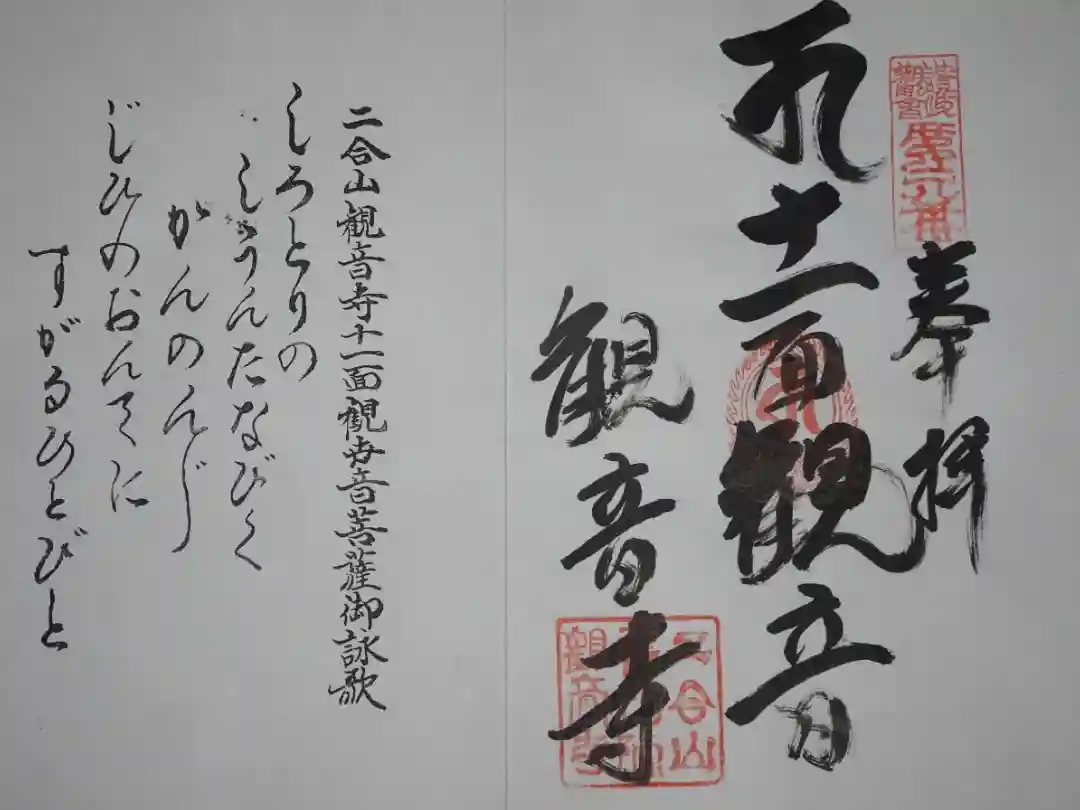 奉拝
十一面観音
観音寺
二合山
二合山観音寺十一面観世音菩薩御詠歌
しろとりの
しうんたなびく
がんのんじ
じひのおんてに
すがるひとびと